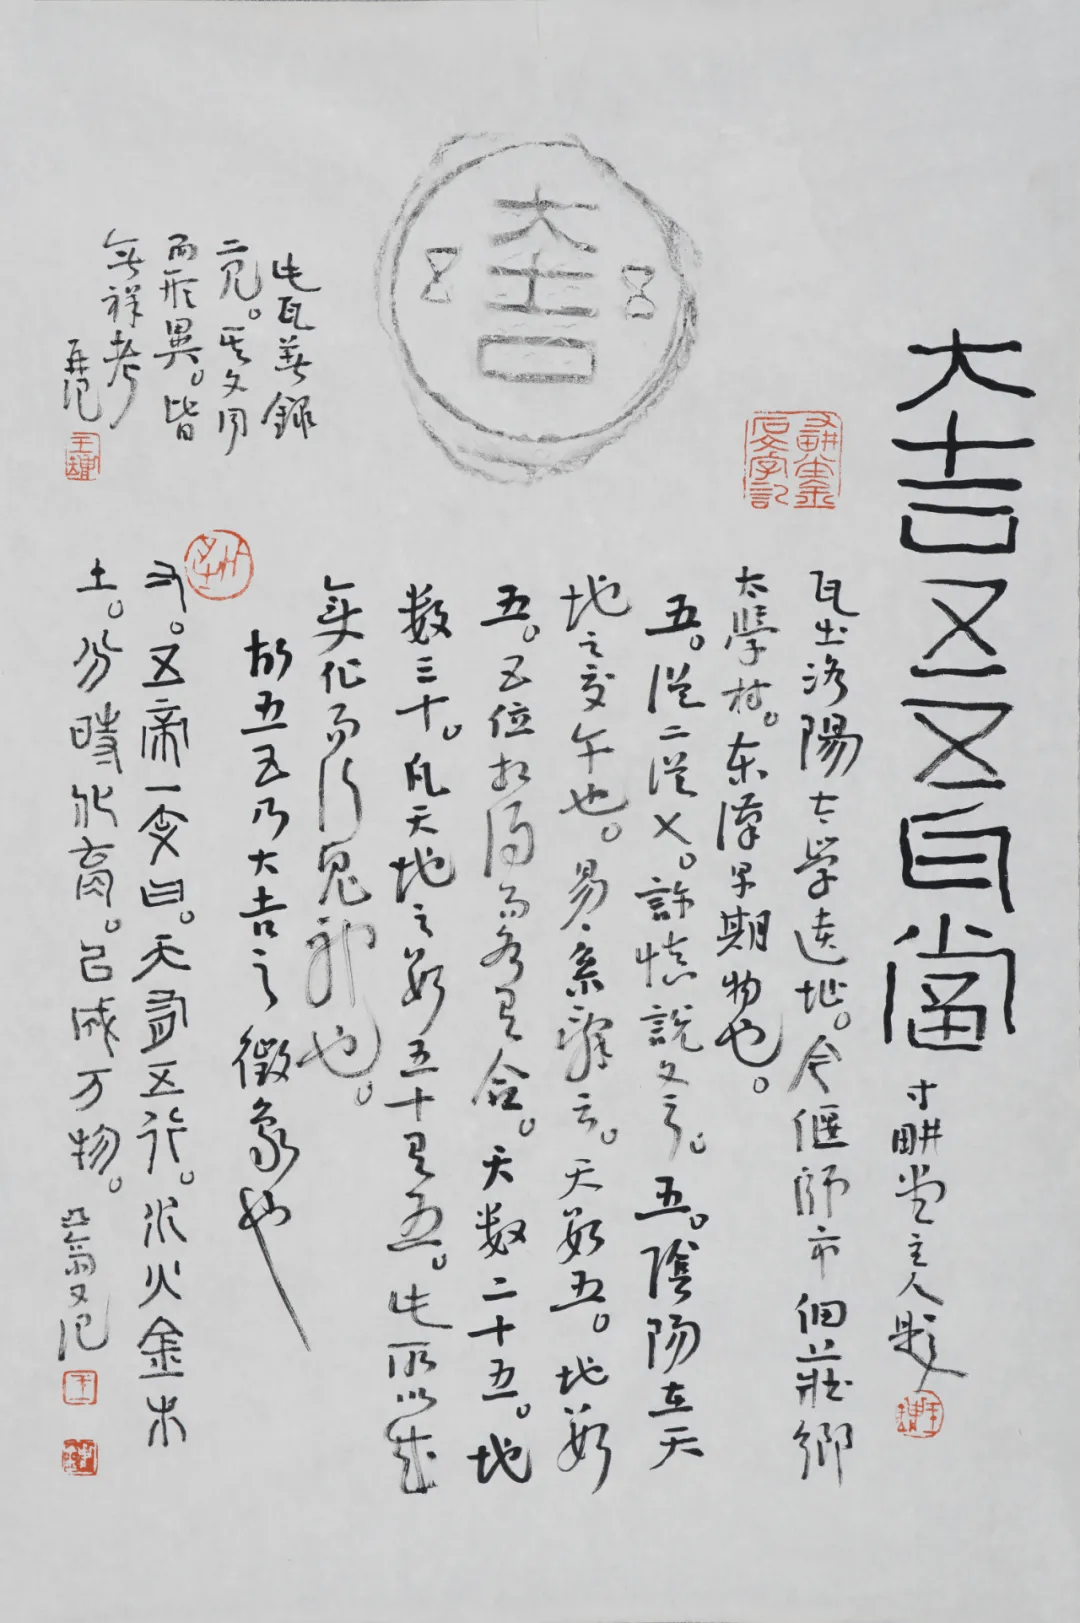 大吉五五瓦當
寸耕堂主人題
瓦出洛陽太學遺址。今偃師市佃莊鄉
太學村。东漢早期物也。
五。從二從乂。許慎說文云。五。陰陽在天
地之交午也。易系辭云。天數五。地數
五。五位相得而各有合。天数二十五。地
数三十。凡天地之數五十有五。此所以成
變化而行鬼神也。
故五五乃大吉之徵象也
又。五帝一变曰。天有五行。水火金木
土。分時化育。以成万物。
又记
大吉
五
五
此瓦著錄
二見。其文同
而形異。皆
無祥考
再记
寸耕堂金
石文字記